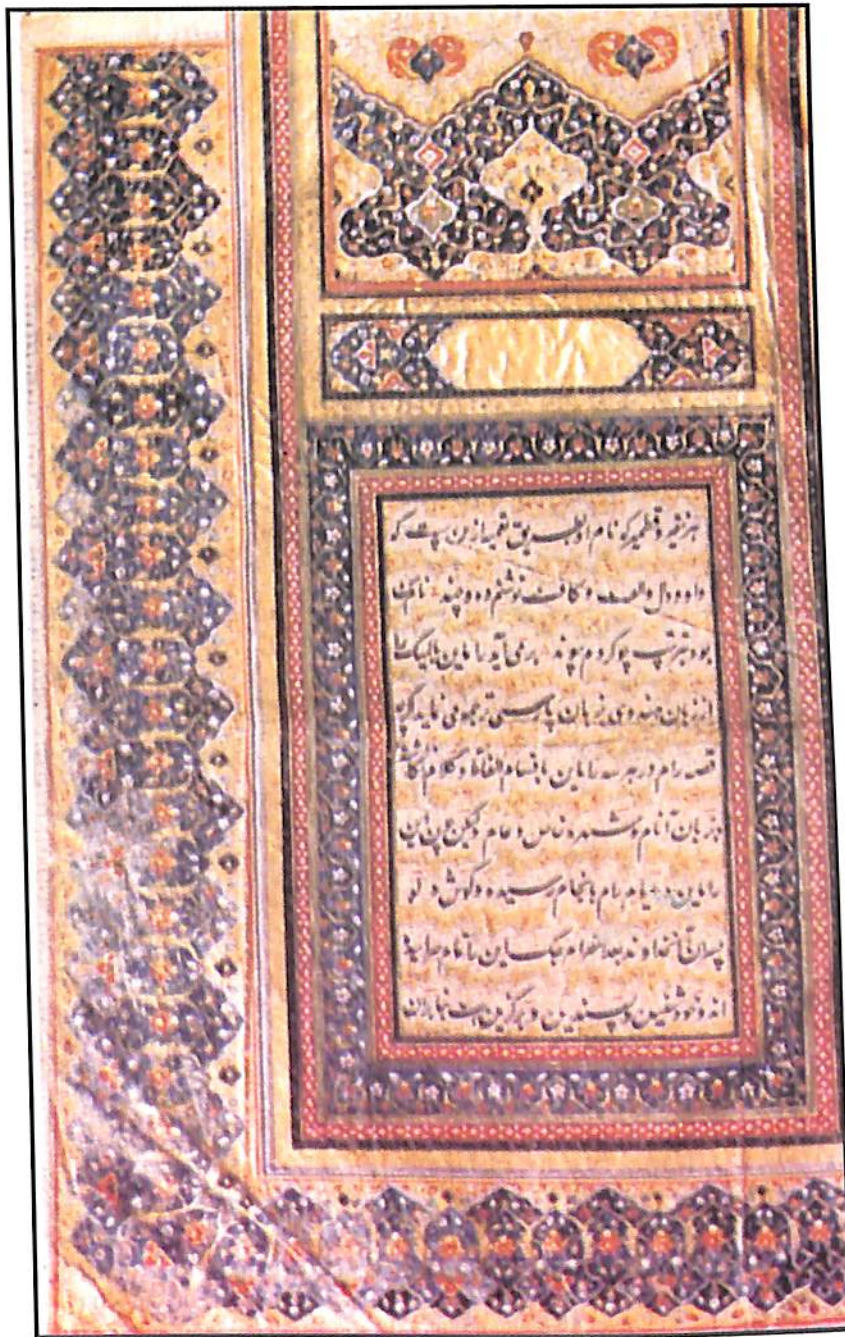 هر نقیر و قطمیر که نام او بطریق تعمیه ازین بیت که
واو و دال و الف و کاف نوشتم ده و چند نام
بود بترتیب کردم پیوند بر می آید راماین بالمیک را
از زبان هندوی بزبان پارسی ترجمه می نماید اگرچه
قصه رام در هر سه راماین باقسام الفاظ و کلام
بزبان آنام و شهره خاص و عام و لیکن چون این
راماین در ایام رام بانجام رسیده و کوش و لو
پسران آنخداوند بعد انصرام جگ این را تمام
اند و خود شنیدن و پسندیدن و